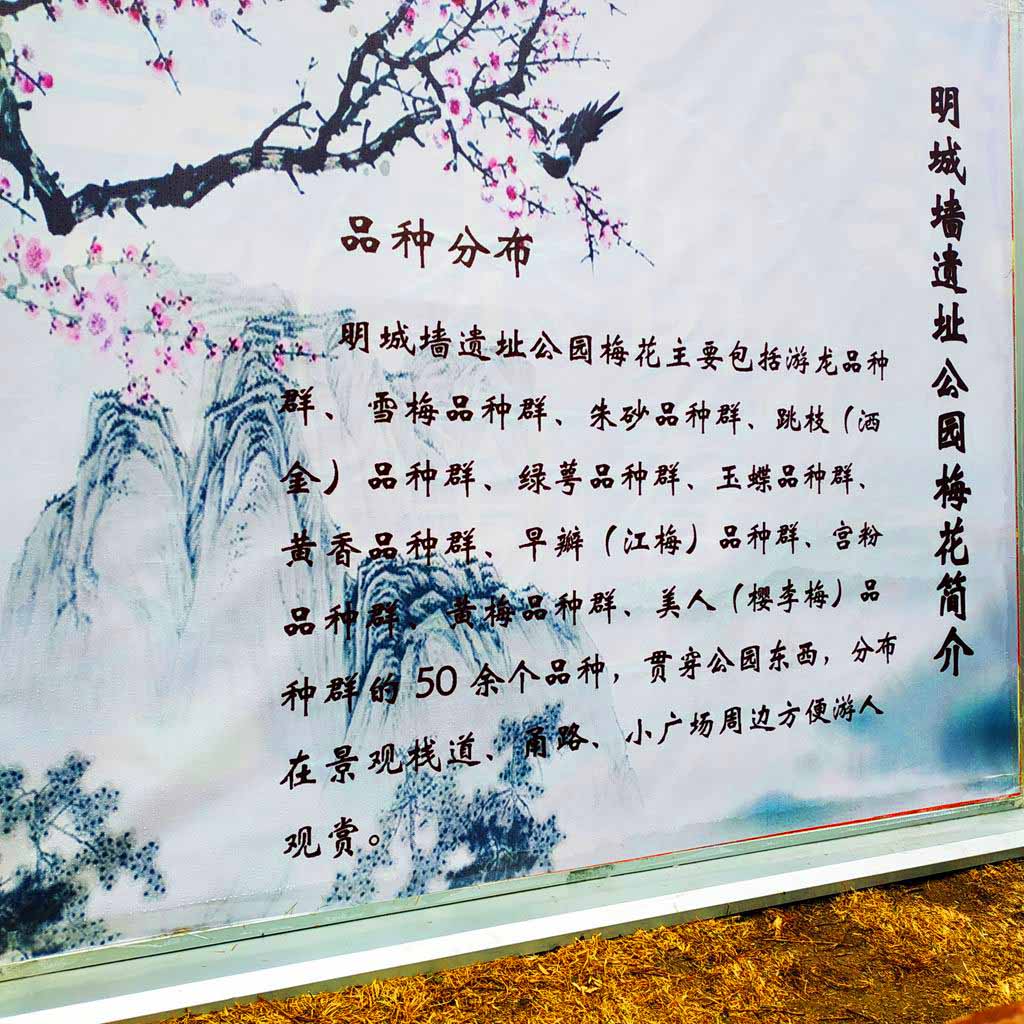 明城墙遗址公园梅花简介
品种分布
明城墙遗址公园梅花主要包括游龙品种
群、雪梅品种群、朱砂品种群、跳枝（洒
金）品种群、绿萼品种群、玉蝶品种群、
黄香品种群、早瓣（江梅）品种群、宫粉
品种群、黄梅品种群、美人（樱李梅）品
种群的50余个品种，贯穿公园东西，分布
在景观栈道、甬路、小广场周边方便游人
观赏。